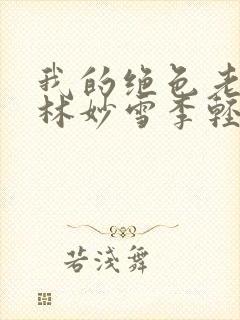 我的绝色老
林妙雪季轻
若淺舞